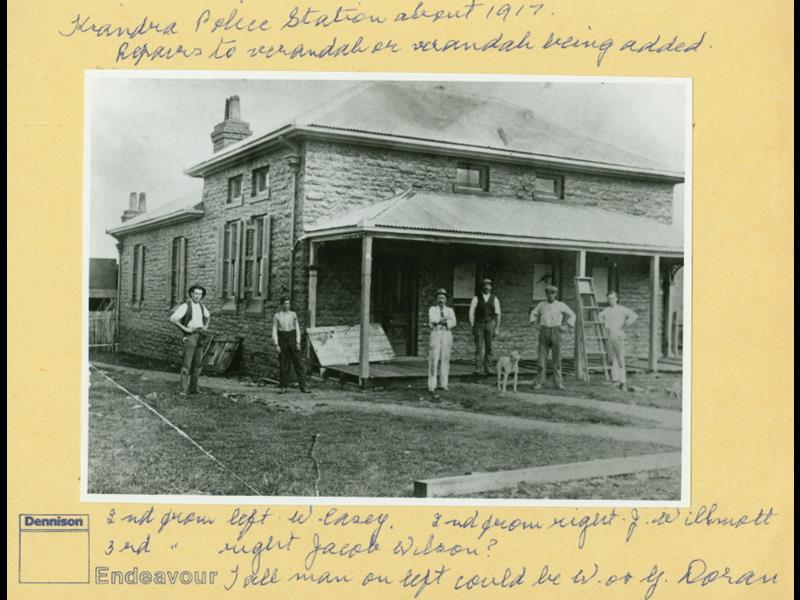 Kiandra Police Station about 1917.
Repairs to verandah or verandah being added.
Dennison
2nd from left W. Casey. 2nd from right J. Willmott
3rd " right Jacob Wilson?
Endeavour
Tall man on left could be W. or G. Doran